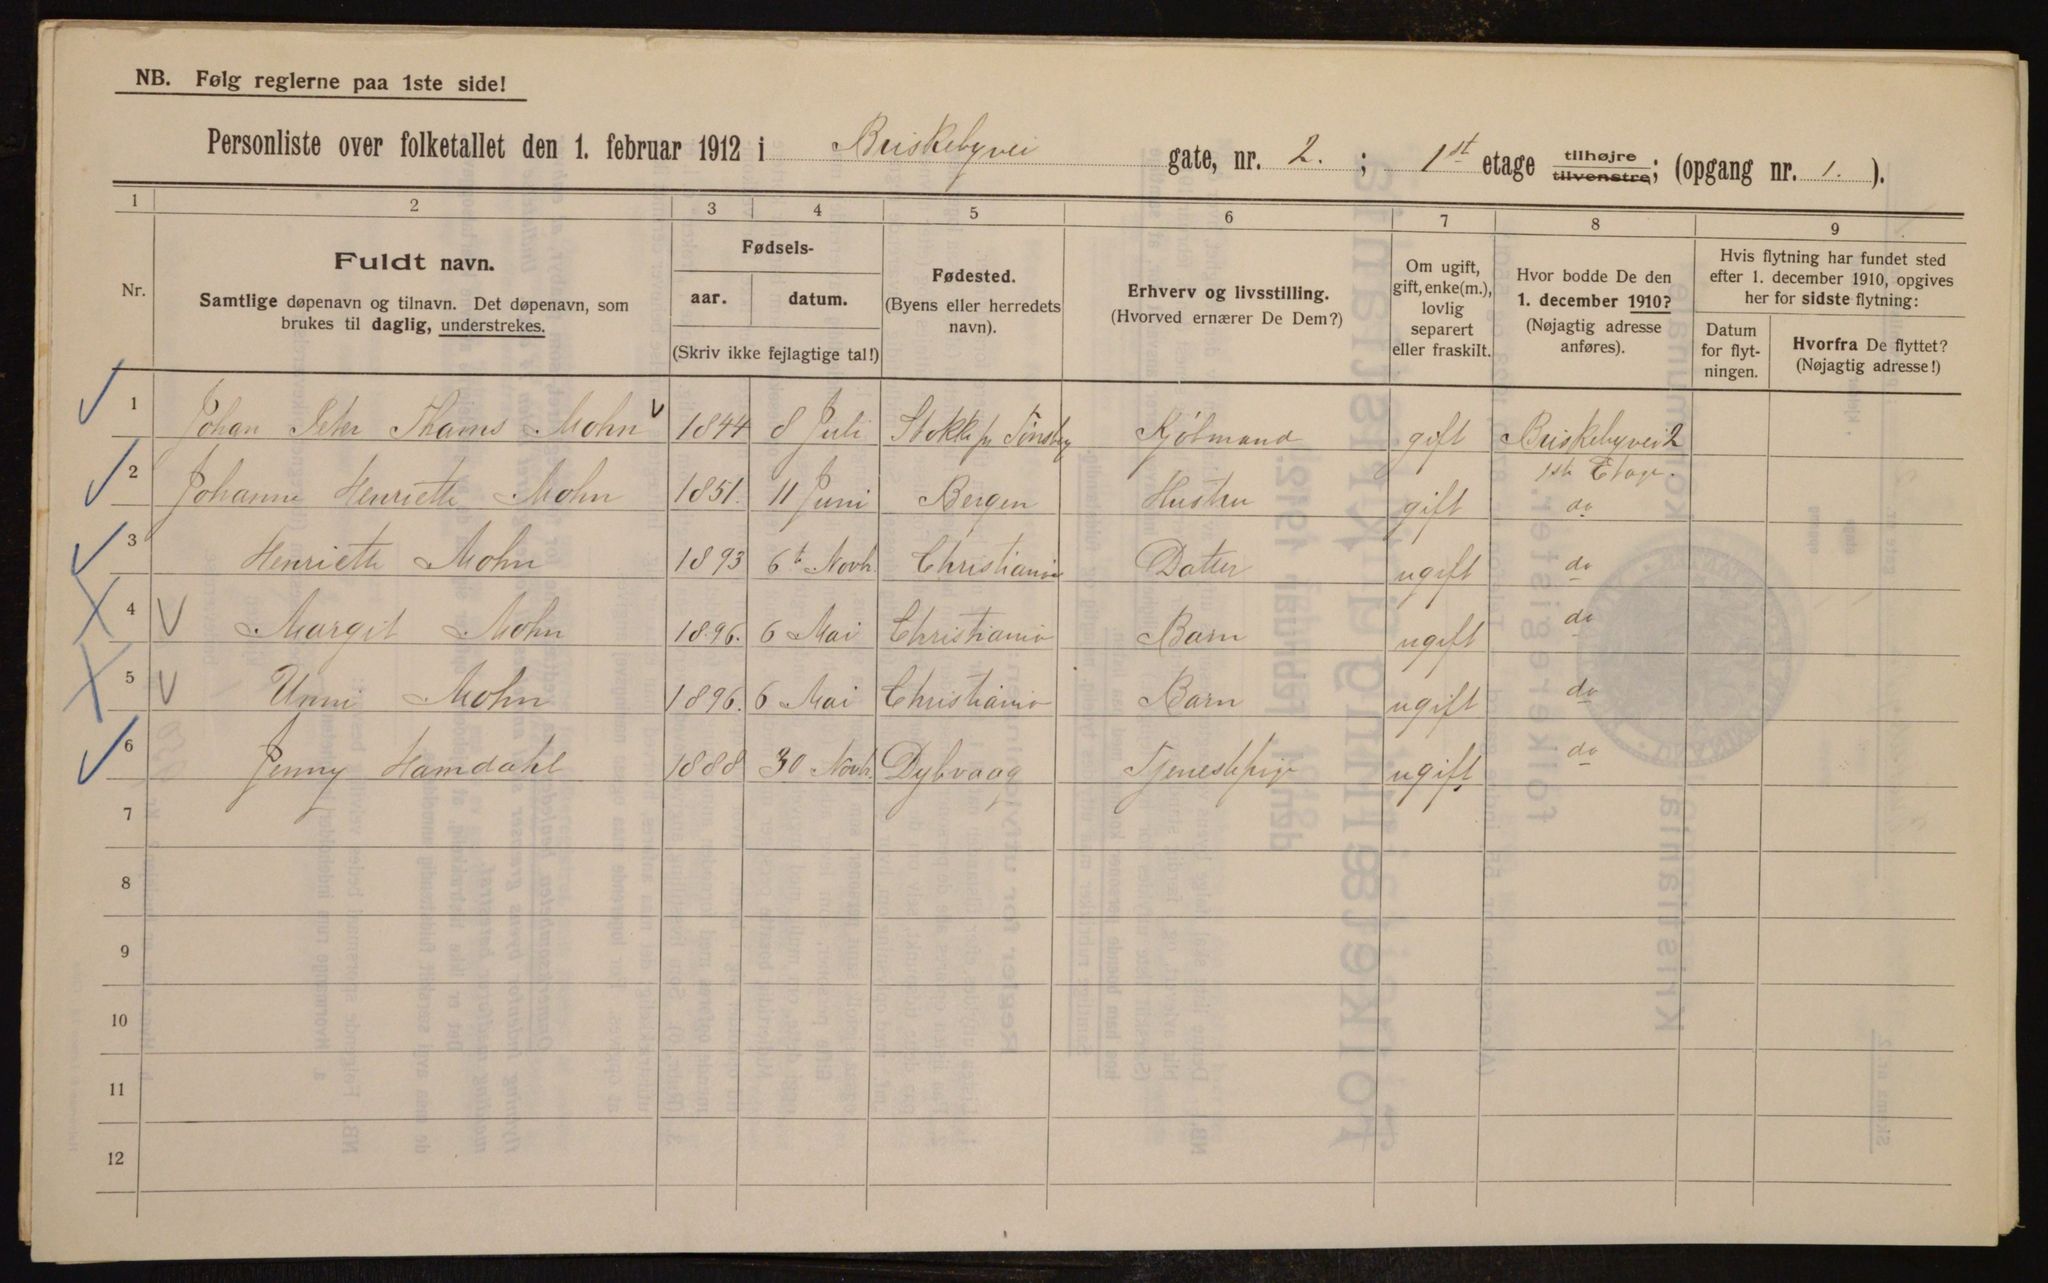 NB. Følg reglerne paa 1ste side!
Personliste over folketallet den 1. februar 1912 i Briskebyvei gate, nr. 2. ; 1st etage tilhøjre tilvenstre; (opgang nr. 1. ).
1 2 3 4 5 6 7 8 9
Nr.
Fuldt navn.
Samtlige døpenavn og tilnavn. Det døpenavn, som
brukes til daglig, understrekes.
Fødsels-
aar. datum.
(Skriv ikke fejlagtige tal!)
Fødested.
(Byens eller herredets
navn).
Erhverv og livsstilling.
(Hvorved ernærer De Dem?)
Om ugift,
gift, enke(m.),
lovlig
separert
eller fraskilt.
Hvor bodde De den
1. december 1910?
(Nøjagtig adresse
anføres).
Hvis flytning har fundet sted
efter 1. december 1910, opgives
her for sidste flytning:
Datum
for flyt-
ningen.
Hvorfra De flyttet?
(Nøjagtig adresse!)
1 Johan Peter Thams Mohn 1844 8 Juli Stokke pr Tønsberg Kjøbmand gift Briskebyvei 2
1st Etage.
2 Johanne Henriette Mohn 1851. 11 Juni Bergen Hustru gift do
3 Henriette Mohn 1893 6t Novb. Christiania Datter ugift do
4 Margit Mohn 1896. 6 Mai Christiania Barn ugift do
5 Unni Mohn 1896. 6 Mai Christiania Barn ugift do
6 Jenny Hamdahl 1888 30 Novb. Dybvaag Tjenestepige ugift do
7
8
9
10
11
12